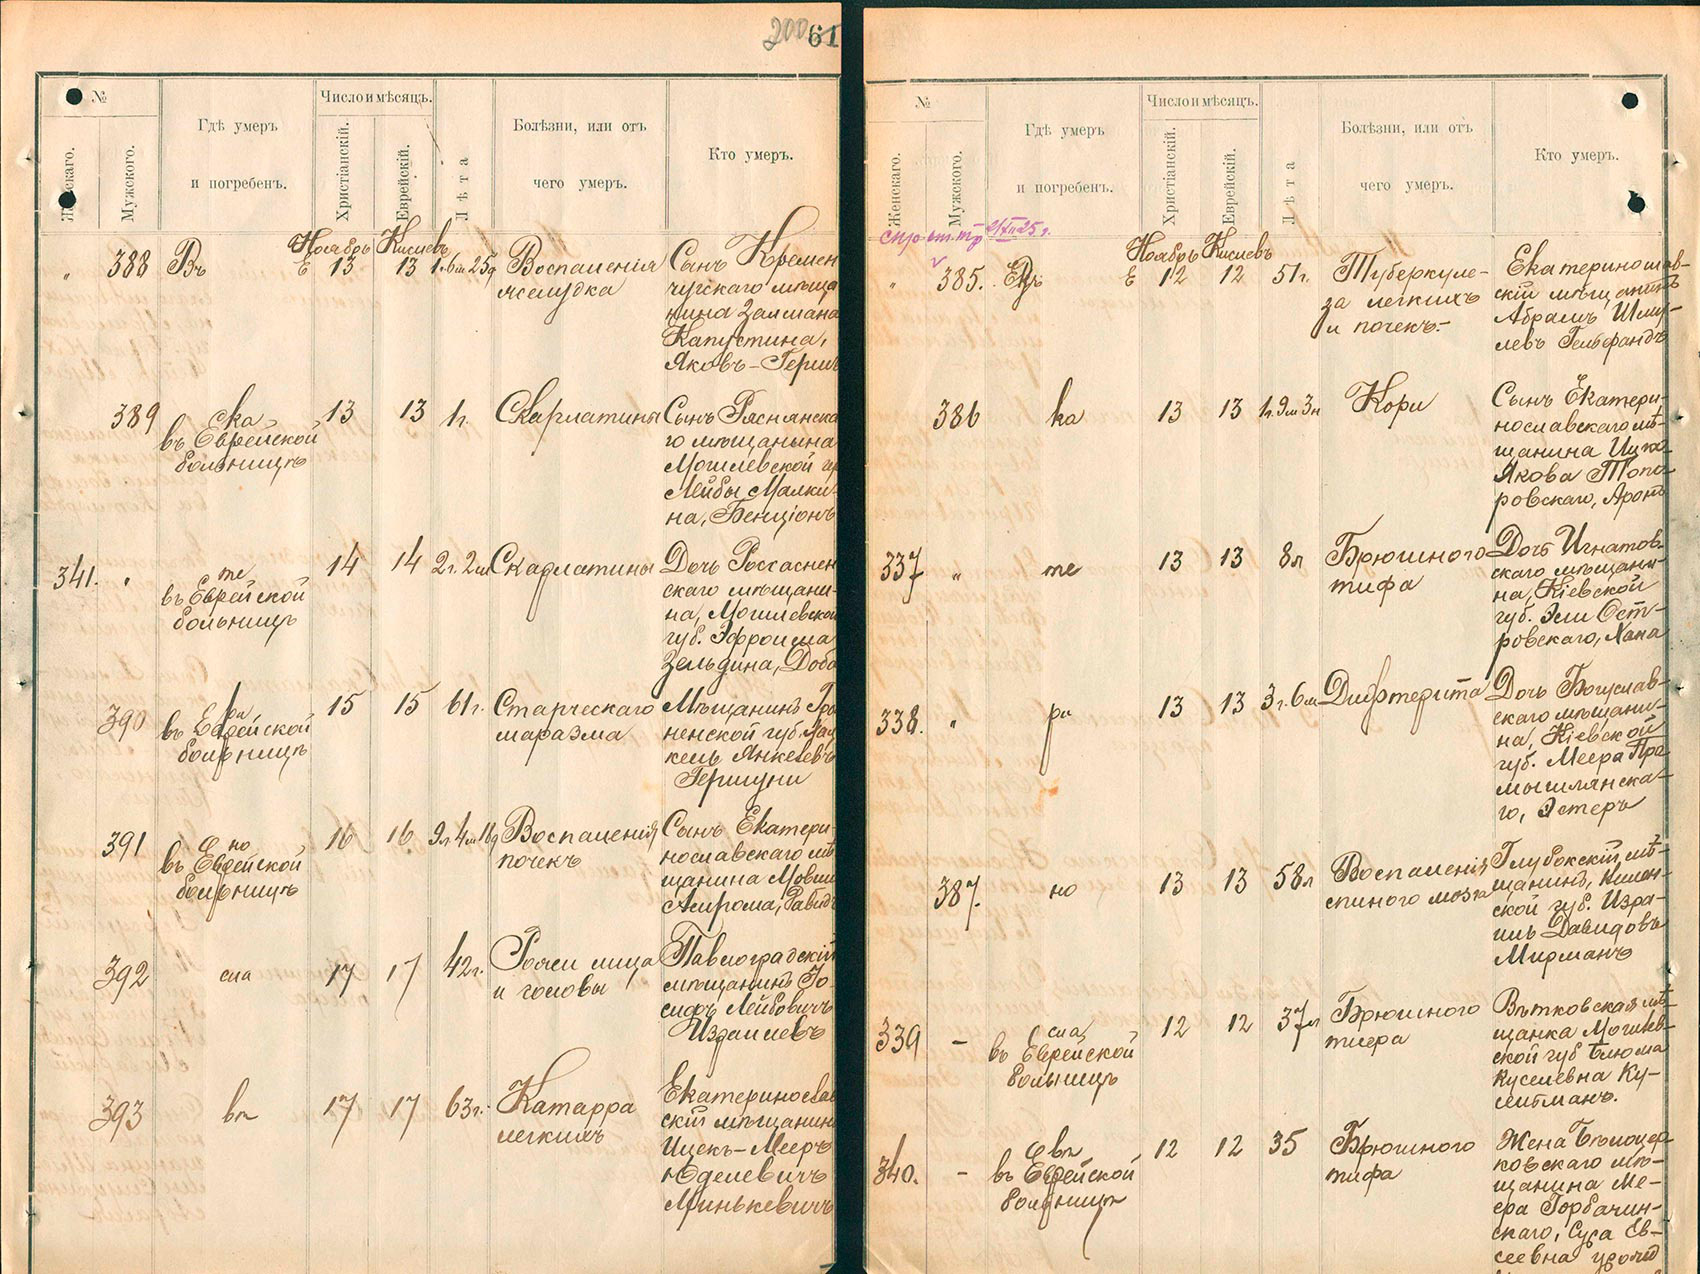 200 61
№
Женскаго.
Мужского.
Гдѣ умеръ
и погребенъ.
Число и мѣсяцъ.
Христіанскій.
Еврейскій.
Лѣта
Болѣзни, или отъ
чего умеръ.
Кто умеръ.
Ноябрь Кислевъ
„ 388 Въ Е 13 13 1г. 6м 25д Воспаленія
желудка
Сынъ Кремен
чугскаго мѣща
нина Залмана
Капустина,
Яковъ-Герш
389 ска
въ Еврейской
больницѣ
13 13 1г. Скарлатины
Сынъ Ряснянска
го мѣщанина
Могилевской гу
Лейбы Малки-
на, Бенціонъ
341. „ те
въ Еврейской
больницѣ
14 14 2г. 2м Скарлатины
Дочь Россаснен
скаго мѣщани-
на, Могилевской
губ. Эфроима
Зельдина, Доба
390 ри
въ Еврейской
больницѣ
15 15 61г. Старческаго
маразма
Мѣщанинъ Гро
ненской губ.
кель Янкелевъ
Гершуни
391 но
въ Еврейской
больницѣ
16 16 9л 4м 18д Воспаленія
почекъ
Сынъ Екатери-
нославскаго мѣ
щанина Мовши
392 сла 17 17 42г. Рожи лица
и головы
Павлоградскій
мѣщанинъ Іо-
сифъ Лейбовичъ
Израилевъ
393 вѣ 17 17 63г. Катарра
легкихъ
Екатеринослав
скій мѣщанин
Ицекъ-Мееръ
Юделевичъ
Минькевичъ
№
Женскаго.
Мужского.
Гдѣ умеръ
и погребенъ.
Число и мѣсяцъ.
Христіанскій.
Еврейскій.
Лѣта
Болѣзни, или отъ
чего умеръ.
Кто умеръ.
Ноябрь Кислевъ
„ 385. Е 12 12 51г. Туберкуле-
за легкихъ
и почекъ.-
Екатеринослав-
скій мѣщанинъ
Абрамъ Шму-
левъ Гельфандъ
386 ка 13 13 1г. 9м 3н Кори
Сынъ Екатери-
нославскаго мѣ-
щанина Ицко-
Якова Топо-
ровскаго, Аронъ
337 „ те 13 13 8л Брюшного
тифа
Дочь Игнатов-
скаго мѣщани-
на, Кіевской
губ. Эли Ост-
ровскаго, Хана
338. „ ри 13 13 3г. 6м Дифтерита
Дочь Богуслав-
скаго мѣщани-
на, Кіевской
губ. Меера Пра
мышлянска-
го, Эстеръ
387. но 13 13 58л Воспаленія
спиного мозга
Глубокскій мѣ-
щанинъ, Вилен-
ской губ. Изра-
иль Давидовъ
Мирманъ
339 - сла
въ Еврейской
больницѣ
12 12 37л Брюшного
тифа
Вѣтковская мѣ-
щанка Могилев-
ской губ Блюма
Куселевна Ку-
сельманъ.
340. - вѣ
въ Еврейской
больницѣ
12 12 35 Брюшного
тифа
Жена Бѣлоцер-
ковскаго мѣ-
щанина Ме-
ера Горбачин-
скаго, Сура Ев-
сеевна урожд